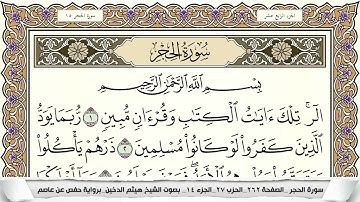 الجزء الرابع عشر
سورة الحجر ١٥
سُورَةُ الحِجْرِ
بِسْمِ اللَّهِ الرَّحْمَٰنِ الرَّحِيمِ
الٓر ۚ تِلْكَ ءَايَٰتُ ٱلْكِتَٰبِ وَقُرْءَانٍ مُّبِينٍ ١ رُّبَمَا يَوَدُّ
ٱلَّذِينَ كَفَرُوا۟ لَوْ كَانُوا۟ مُسْلِمِينَ ٢ ذَرْهُمْ يَأْكُلُوا۟
سورة الحجر _الصفحة ٢٦٢_الحزب ٢٧_الجزء ١٤_ بصوت الشيخ هيثم الدخين_برواية حفص عن عاصم